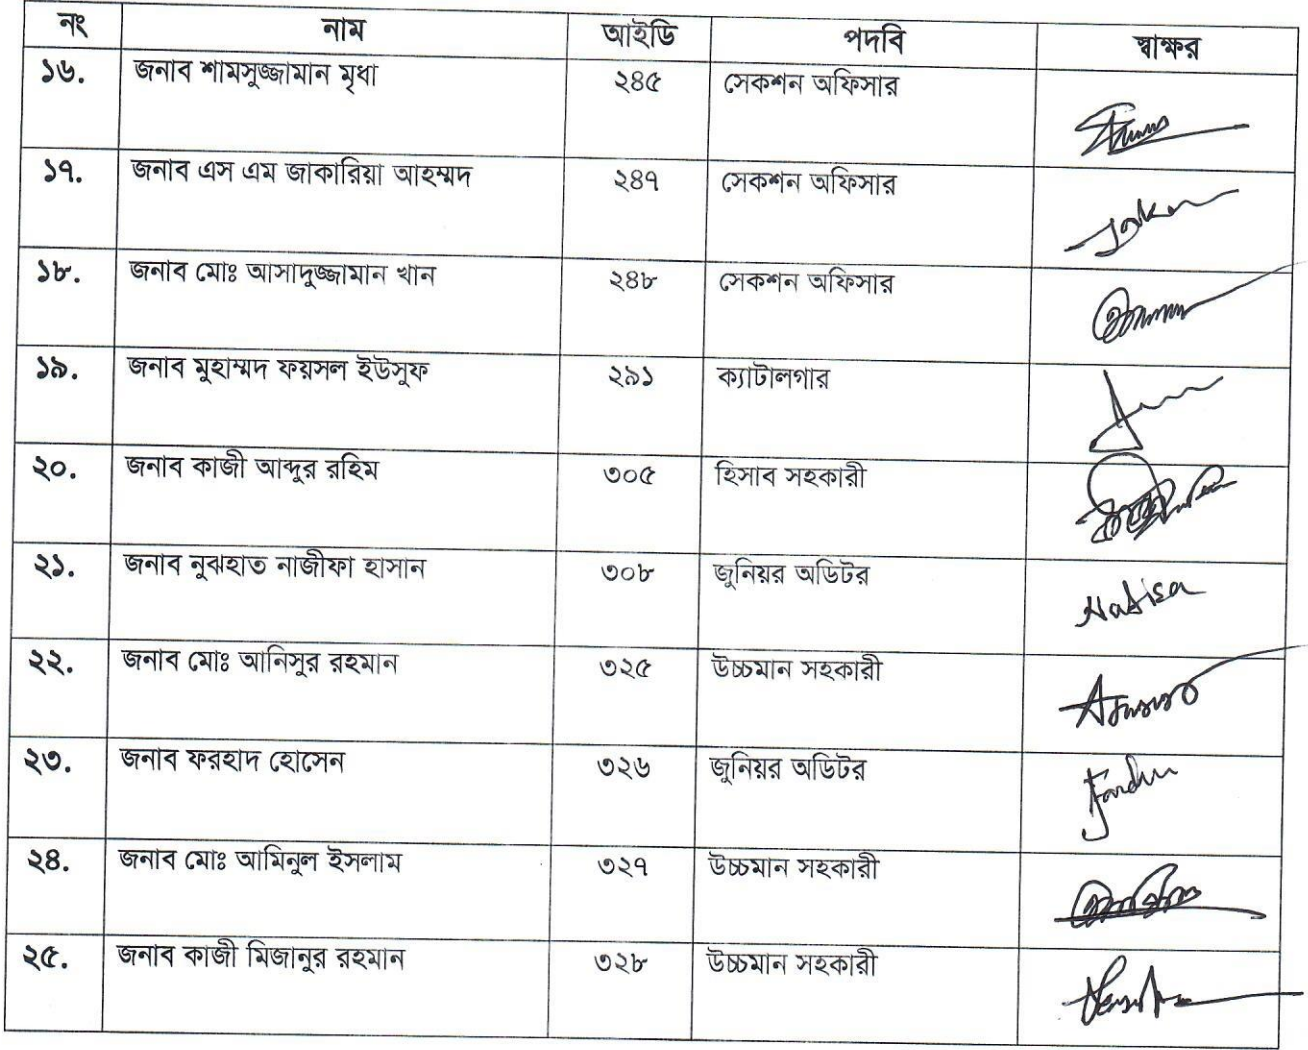 নং নাম আইডি পদবি স্বাক্ষর
১৬. জনাব শামসুজ্জামান মৃধা ২৪৫ সেকশন অফিসার
১৭. জনাব এস এম জাকারিয়া আহম্মদ ২৪৭ সেকশন অফিসার
১৮. জনাব মোঃ আসাদুজ্জামান খান ২৪৮ সেকশন অফিসার
১৯. জনাব মুহাম্মদ ফয়সল ইউসুফ ২৯১ ক্যাটালগার
২০. জনাব কাজী আব্দুর রহিম ৩০৫ হিসাব সহকারী
২১. জনাব নুঝহাত নাজীফা হাসান ৩০৮ জুনিয়র অডিটর
২২. জনাব মোঃ আনিসুর রহমান ৩২৫ উচ্চমান সহকারী
২৩. জনাব ফরহাদ হোসেন ৩২৬ জুনিয়র অডিটর
২৪. জনাব মোঃ আমিনুল ইসলাম ৩২৭ উচ্চমান সহকারী
২৫. জনাব কাজী মিজানুর রহমান ৩২৮ উচ্চমান সহকারী